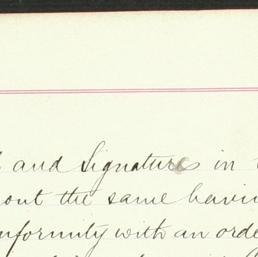 and Signatures in
out the same havin
nformity with an orde